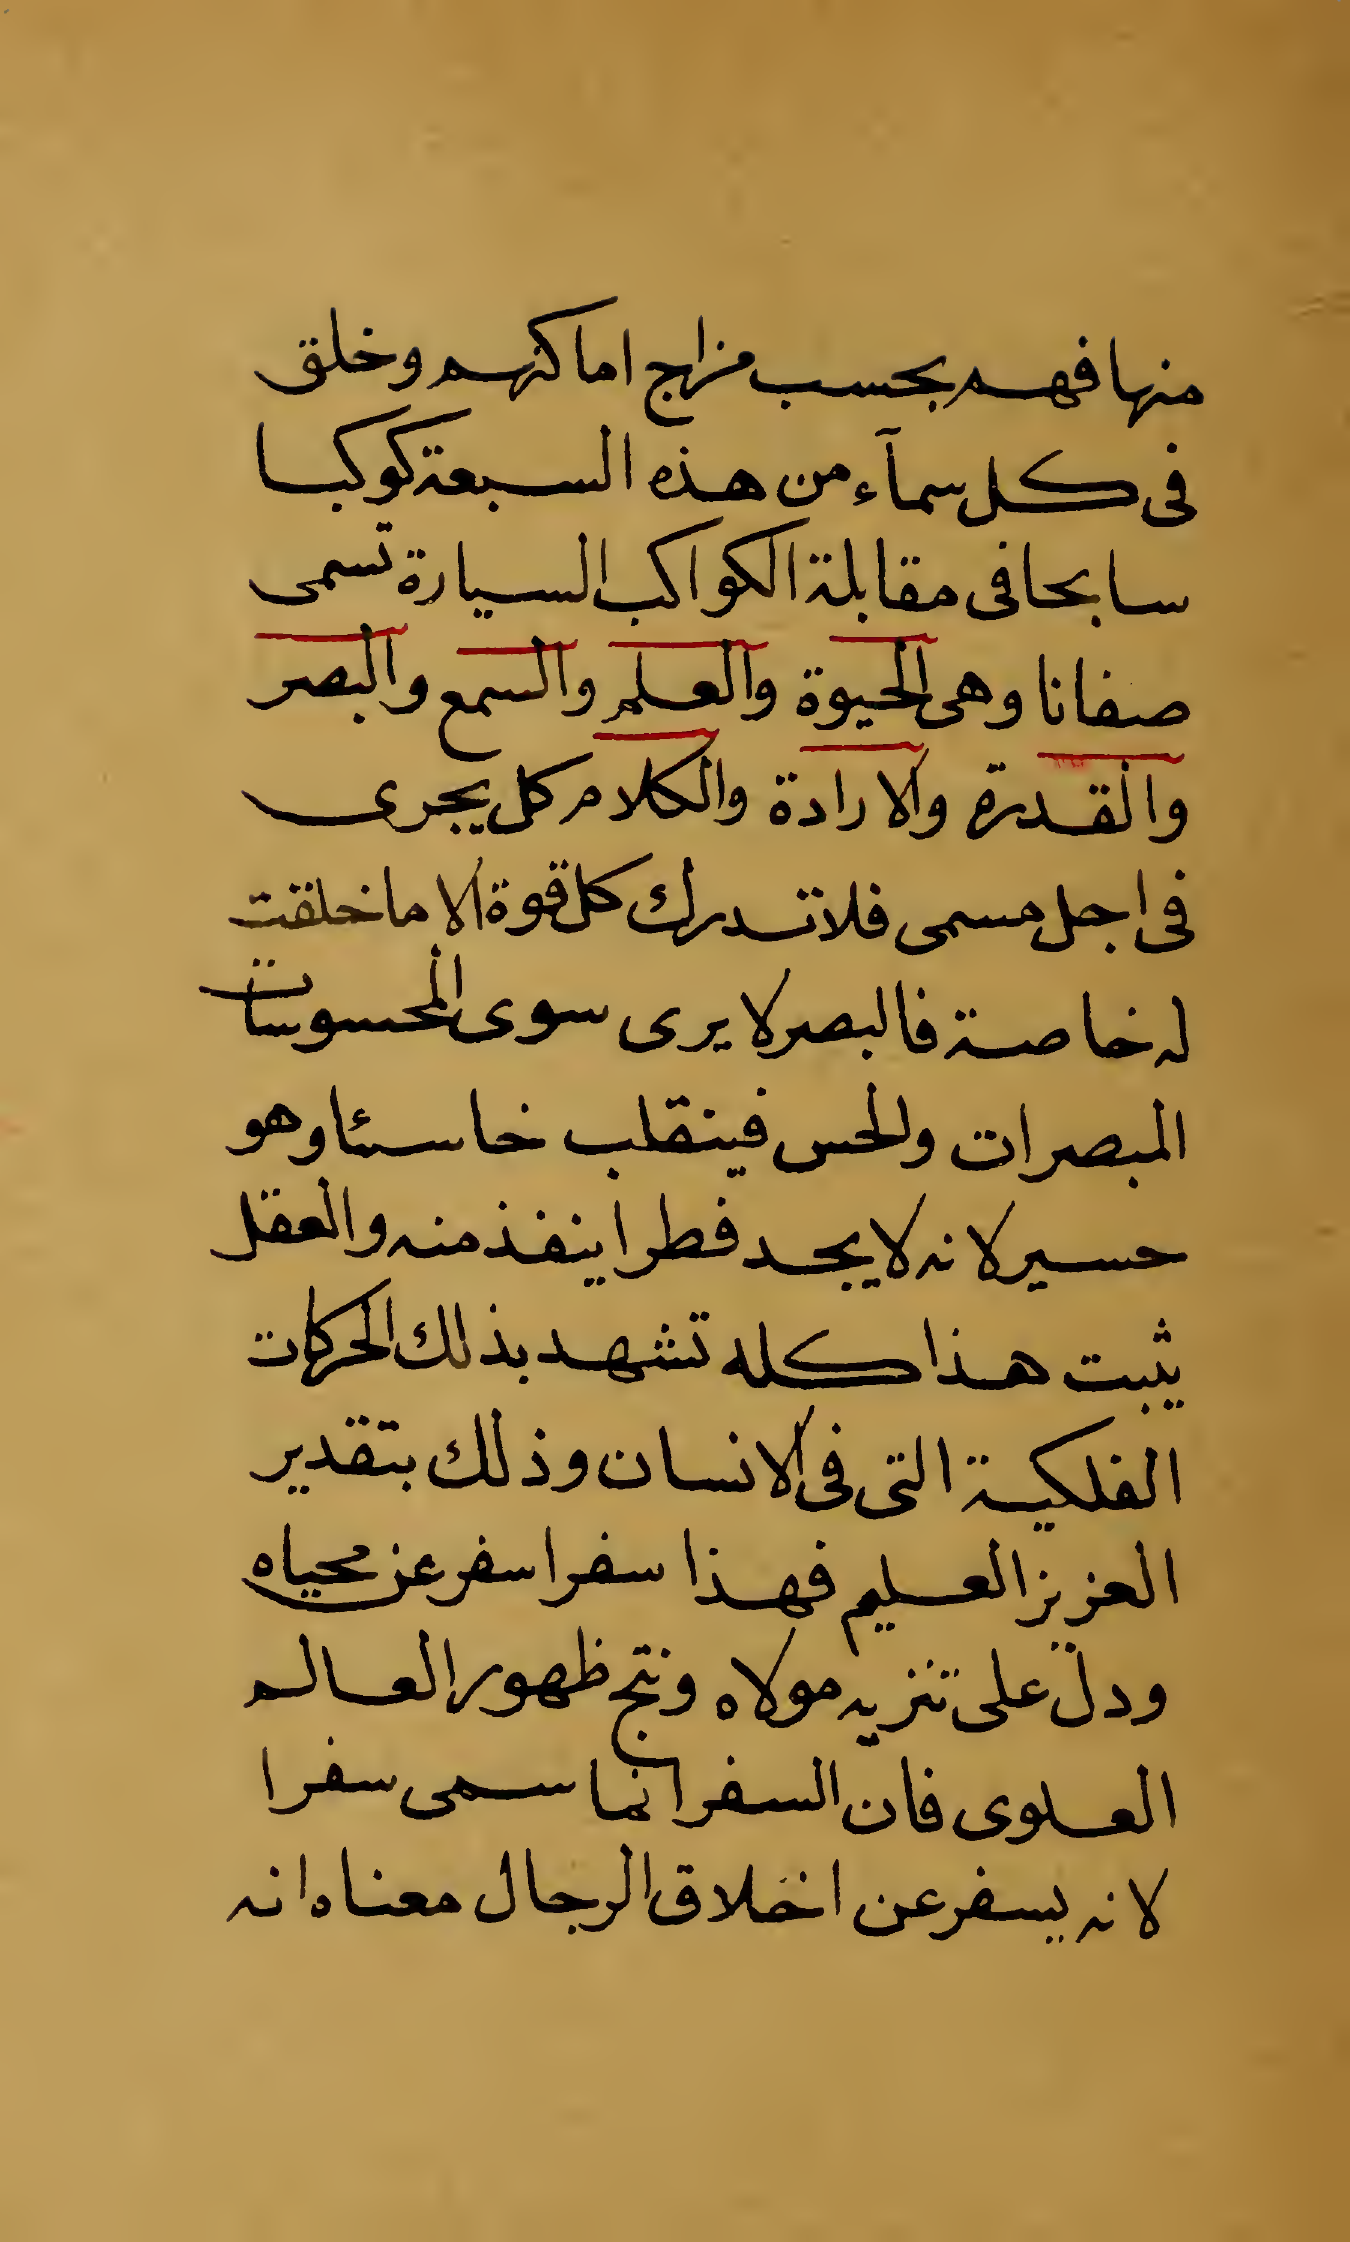 منها فهم بحسب مزاج اماكنهم وخلق
فى كل سمآء من هذه السبعة كوكبا
سابحا فى مقابلة الكواكب السيارة تسمى
صفاتا وهى الحيوة والعلم والسمع والبصر
والقدرة والارادة والكلام كل يجرى
فى اجل مسمى فلا تدرك كل قوة الا ما خلقت
له خاصة فالبصر لا يرى سوى المحسوسات
المبصرات والحس فينقلب خاسئا وهو
حسير لانه لا يجد فطرا ينفذ منه والعقل
يثبت هذا كله تشهد بذلك الحركات
الفلكية التى فى الانسان وذلك بتقدير
العزيز العليم فهذا سفر اسفر عن محياه
ودل على تنزيه مولاه ونتج ظهور العالم
العلوى فان السفر انما سمى سفرا
لانه يسفر عن اخلاق الرجال معناه انه